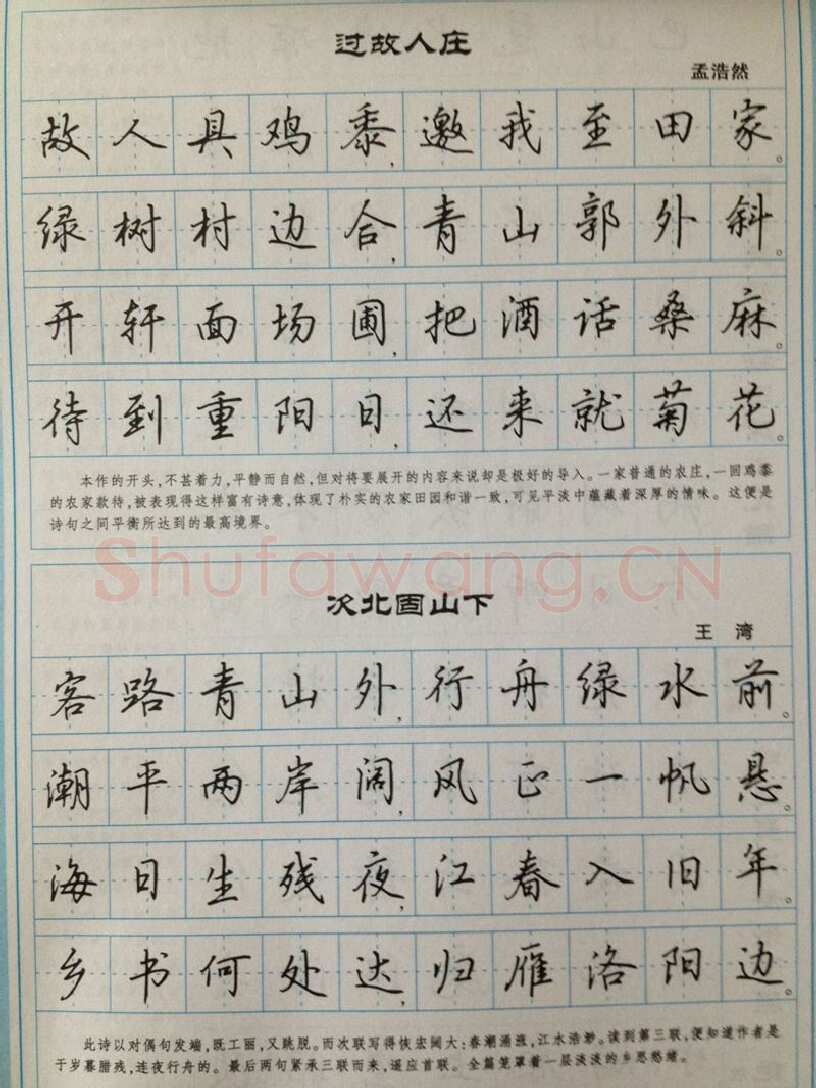 过故人庄
孟浩然
故人具鸡黍,邀我至田家。
绿树村边合,青山郭外斜。
开轩面场圃,把酒话桑麻。
待到重阳日,还来就菊花。
本作的开头,不甚着力,平静而自然,但对将要展开的内容来说却是极好的导入。一家普通的农庄,一回鸡黍
的农家款待,被表现得这样富有诗意,体现了朴实的农家田园和谐一致,可见平淡中蕴藏着深厚的情味。这便是
诗句之间平衡所达到的最高境界。
Shufawang.CN
次北固山下
王 湾
客路青山外,行舟绿水前。
潮平两岸阔,风正一帆悬。
海日生残夜,江春入旧年。
乡书何处达,归雁洛阳边。
此诗以对偶句发端,既工丽,又跳脱。而次联写得恢宏阔大:春潮涌涨,江水浩渺。读到第三联,便知道作者是
于岁暮腊残,连夜行舟的。最后两句紧承三联而来,遥应首联。全篇笼罩着一层淡淡的乡思愁绪。